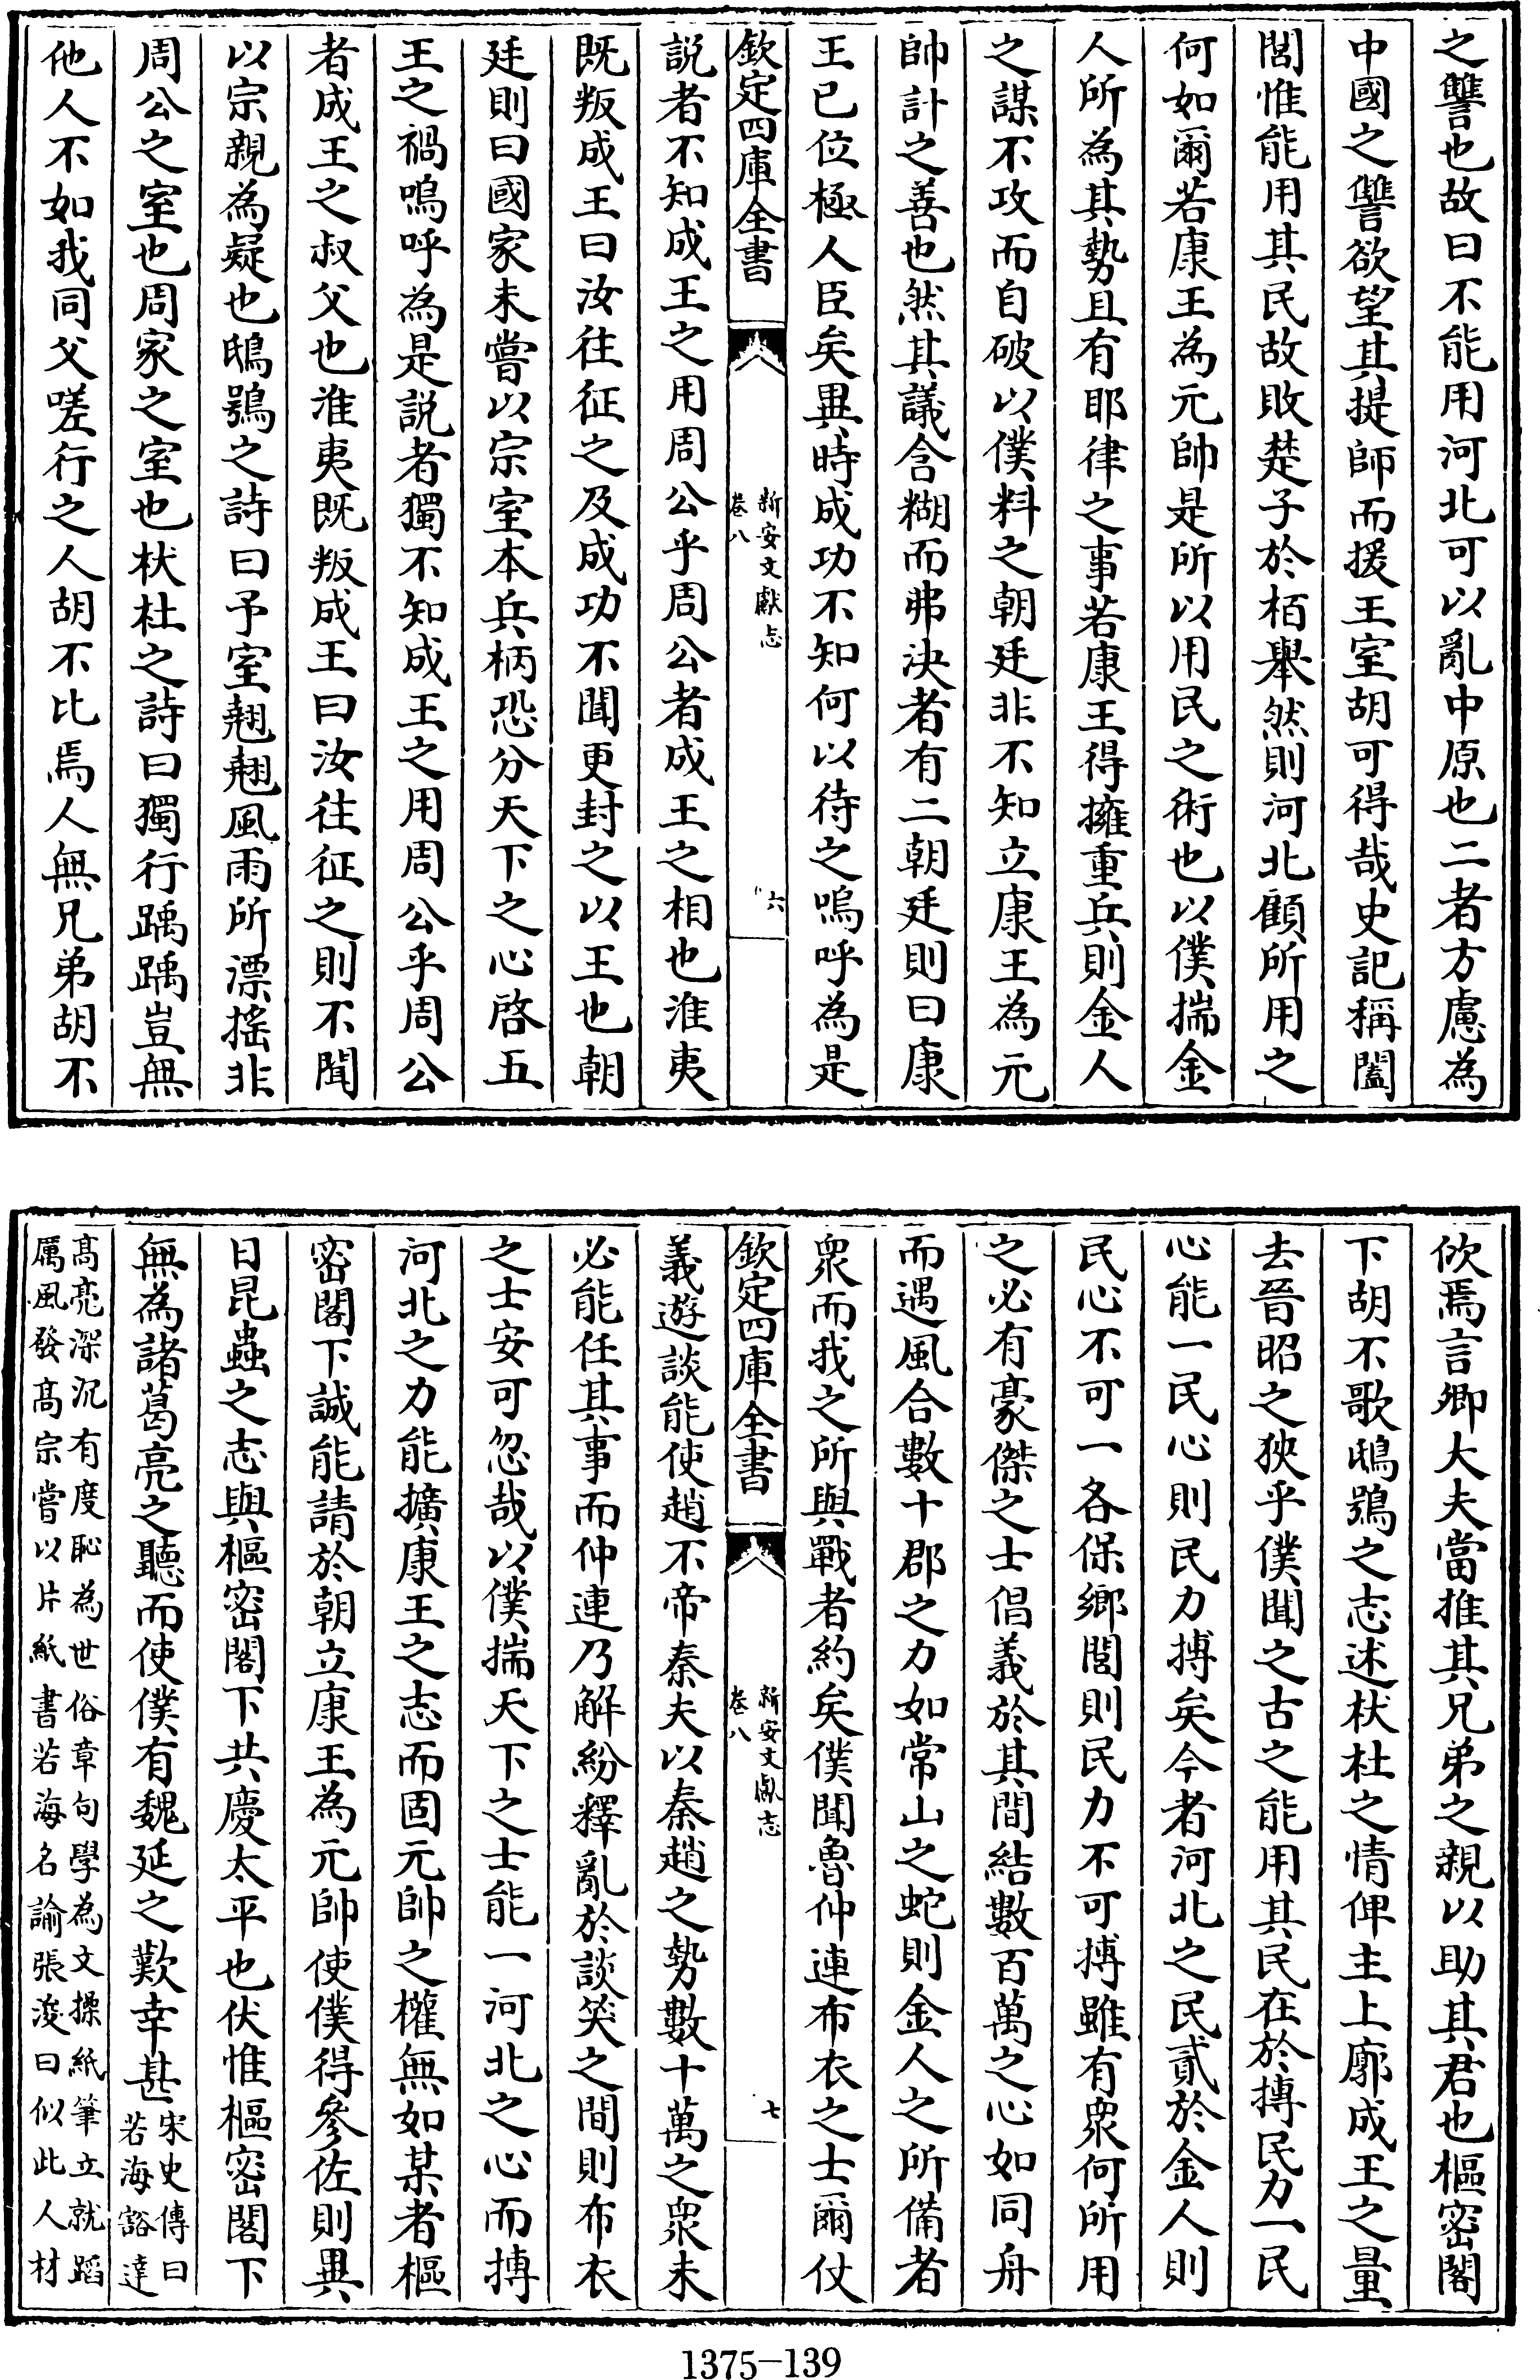 之讐也故曰不能用河北可以亂中原也二者方慮為
中國之讐欲望其提師而援王室胡可得哉史記稱闔
閭惟能用其民故敗楚子於栢舉然則河北顧所用之
何如爾若康王為元帥是所以用民之術也以僕揣金
人所為其勢且有耶律之事若康王得擁重兵則金人
之謀不攻而自破以僕料之朝廷非不知立康王為元
帥計之善也然其議含糊而弗決者有二朝廷則曰康
王已位極人臣矣異時成功不知何以待之嗚呼為是
欽定四庫全書
新安文獻志
卷八
六
説者不知成王之用周公乎周公者成王之相也淮夷
既叛成王曰汝往征之及成功不聞更封之以王也朝
廷則曰國家未嘗以宗室本兵柄恐分天下之心啓五
王之禍嗚呼為是説者獨不知成王之用周公乎周公
者成王之叔父也淮夷既叛成王曰汝往征之則不聞
以宗親為疑也鴟鴞之詩曰予室翹翹風雨所漂揺非
周公之室也周家之室也杕杜之詩曰獨行踽踽豈無
他人不如我同父嗟行之人胡不比焉人無兄弟胡不
佽焉言卿大夫當推其兄弟之親以助其君也樞密閣
下胡不歌鴟鴞之志述杕杜之情俾主上廓成王之量
去晉昭之狹乎僕聞之古之能用其民在於摶民力一民
心能一民心則民力摶矣今者河北之民貳於金人則
民心不可一各保鄉閭則民力不可摶雖有衆何所用
之必有豪傑之士倡義於其間結數百萬之心如同舟
而遇風合數十郡之力如常山之蛇則金人之所備者
衆而我之所與戰者約矣僕聞魯仲連布衣之士爾仗
欽定四庫全書
新安文獻志
卷八
七
義遊談能使趙不帝秦夫以秦趙之勢數十萬之衆未
必能任其事而仲連乃解紛釋亂於談笑之間則布衣
之士安可忽哉以僕揣天下之士能一河北之心而摶
河北之力能擴康王之志而固元帥之權無如某者樞
密閣下誠能請於朝立康王為元帥使僕得參佐則異
日昆蟲之志與樞密閣下共慶太平也伏惟樞密閣下
無為諸葛亮之聽而使僕有魏延之歎幸甚
宋史傳曰
若海豁達
髙亮深沉有度恥為世俗章句學為文操紙筆立就蹈
厲風發髙宗嘗以片紙書若海名諭張浚曰似此人材
1375-139